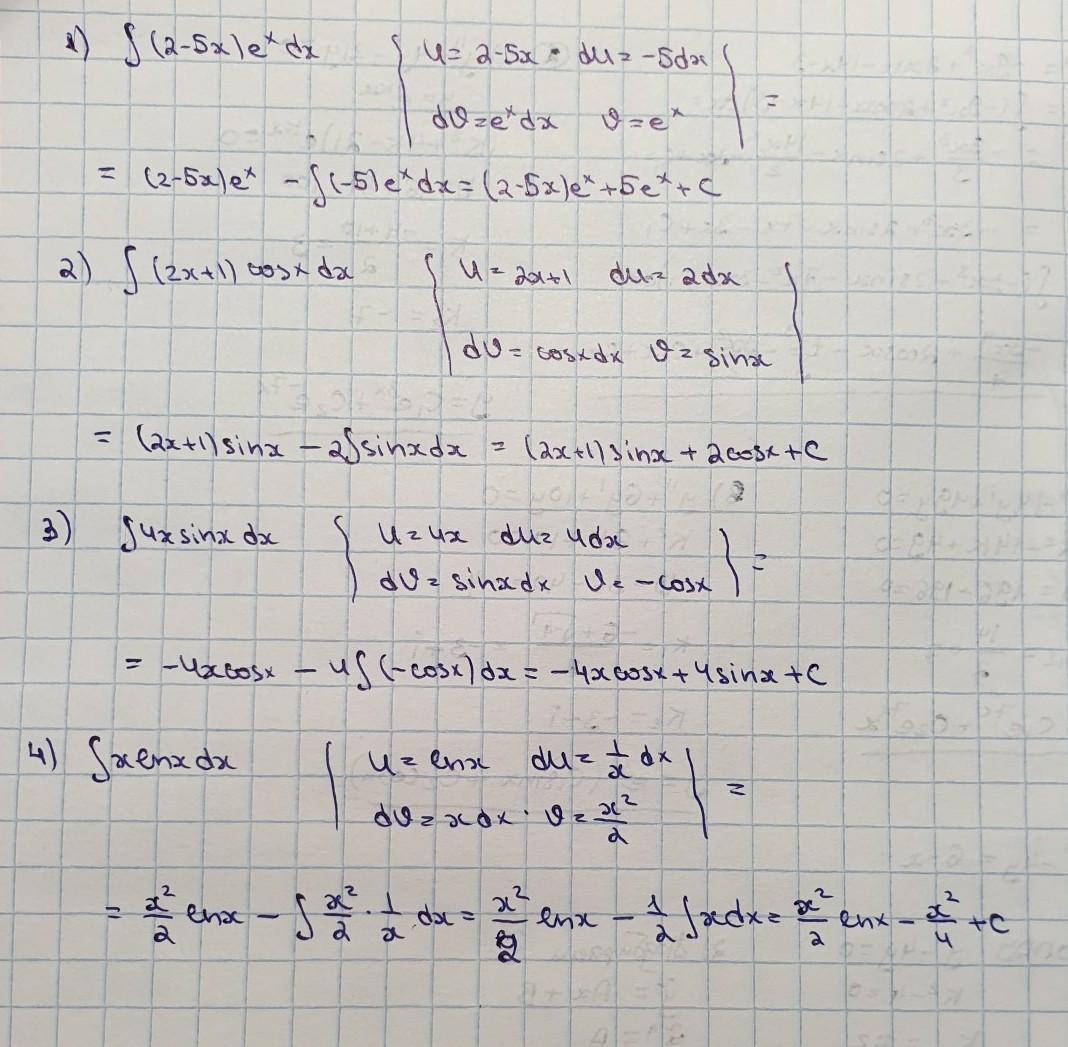 1) ∫(2-5x)eˣdx { u = 2-5x · du = -5dx
dϑ = eˣdx ϑ = eˣ } =
= (2-5x)eˣ - ∫(-5)eˣdx = (2-5x)eˣ + 5eˣ + C
2) ∫(2x+1)cosx dx { u = 2x+1 du = 2dx
dϑ = cosxdx ϑ = sinx }
= (2x+1)sinx - 2∫sinxdx = (2x+1)sinx + 2cosx + C
3) ∫4xsinx dx { u = 4x du = 4dx
dϑ = sinxdx ϑ = -cosx } =
= -4xcosx - 4∫(-cosx)dx = -4xcosx + 4sinx + C
4) ∫xlnxdx | u = lnx du = 1/x dx
dϑ = xdx · ϑ = x²/2 } =
= x²/2 lnx - ∫ x²/2 · 1/x dx = x²/2 lnx - 1/2 ∫xdx = x²/2 lnx - x²/4 + C